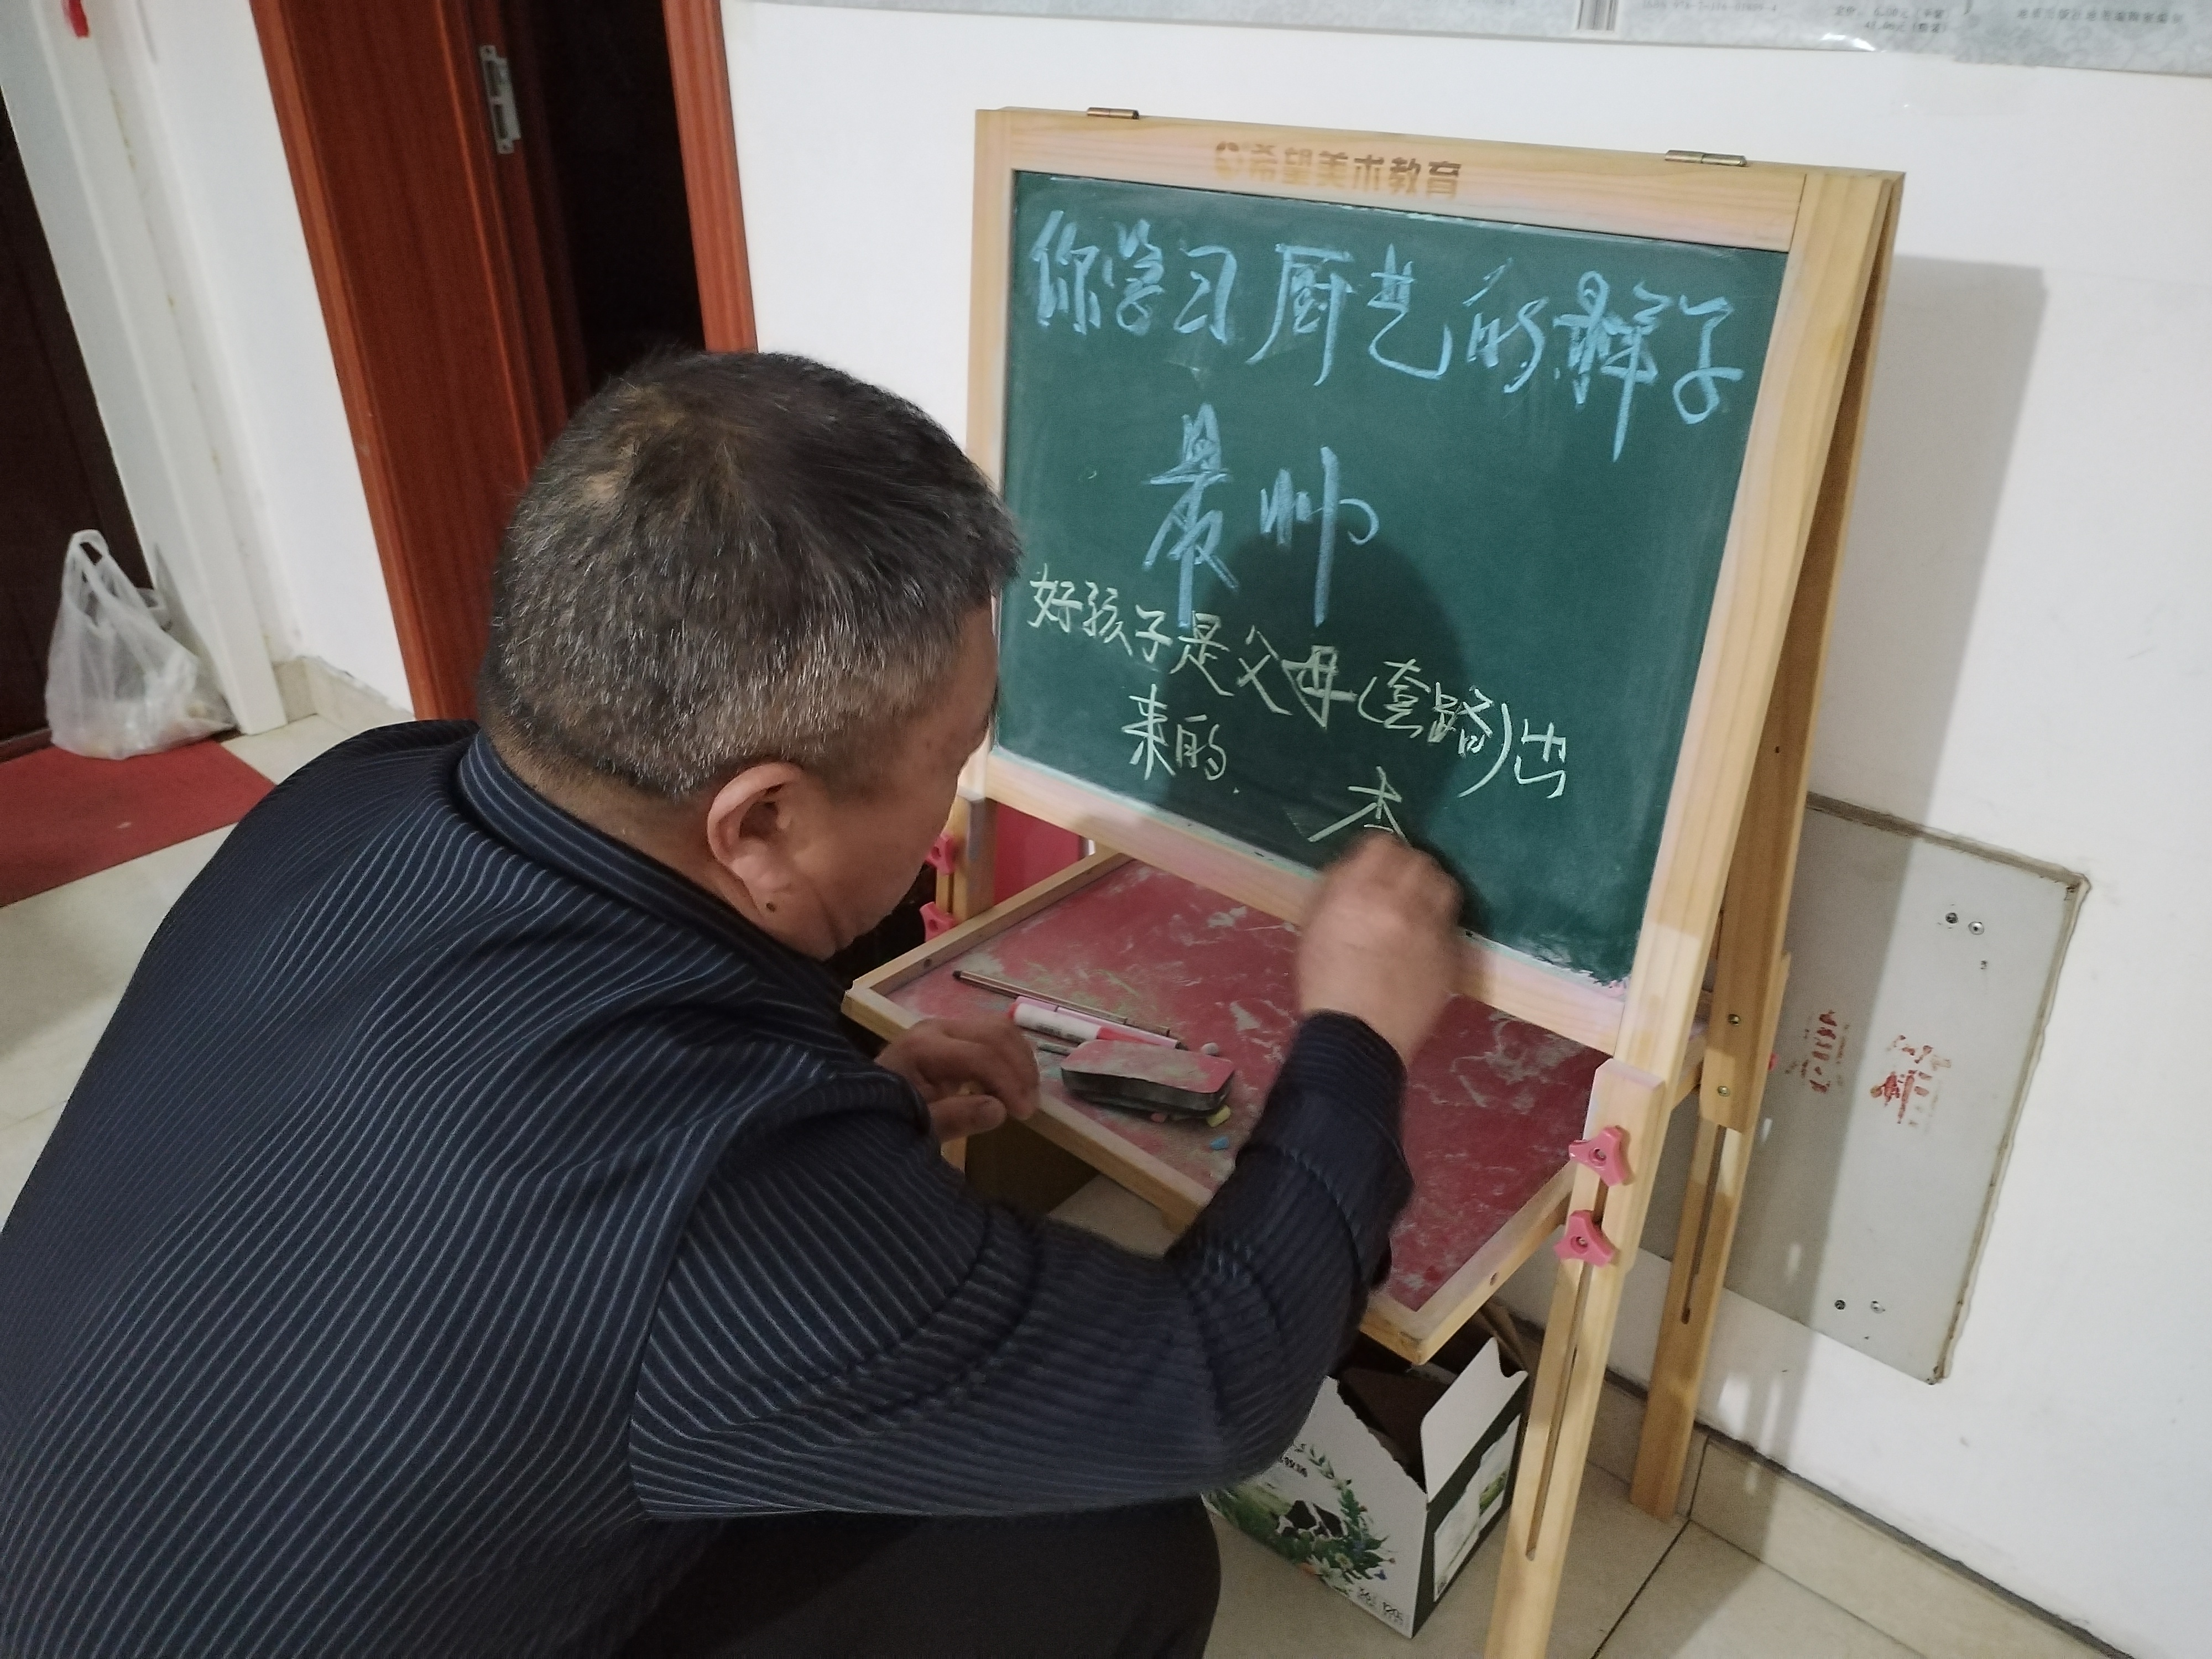 希望美术教育
你学习厨艺的样子
最帅
好孩子是父母(套路)出
来的